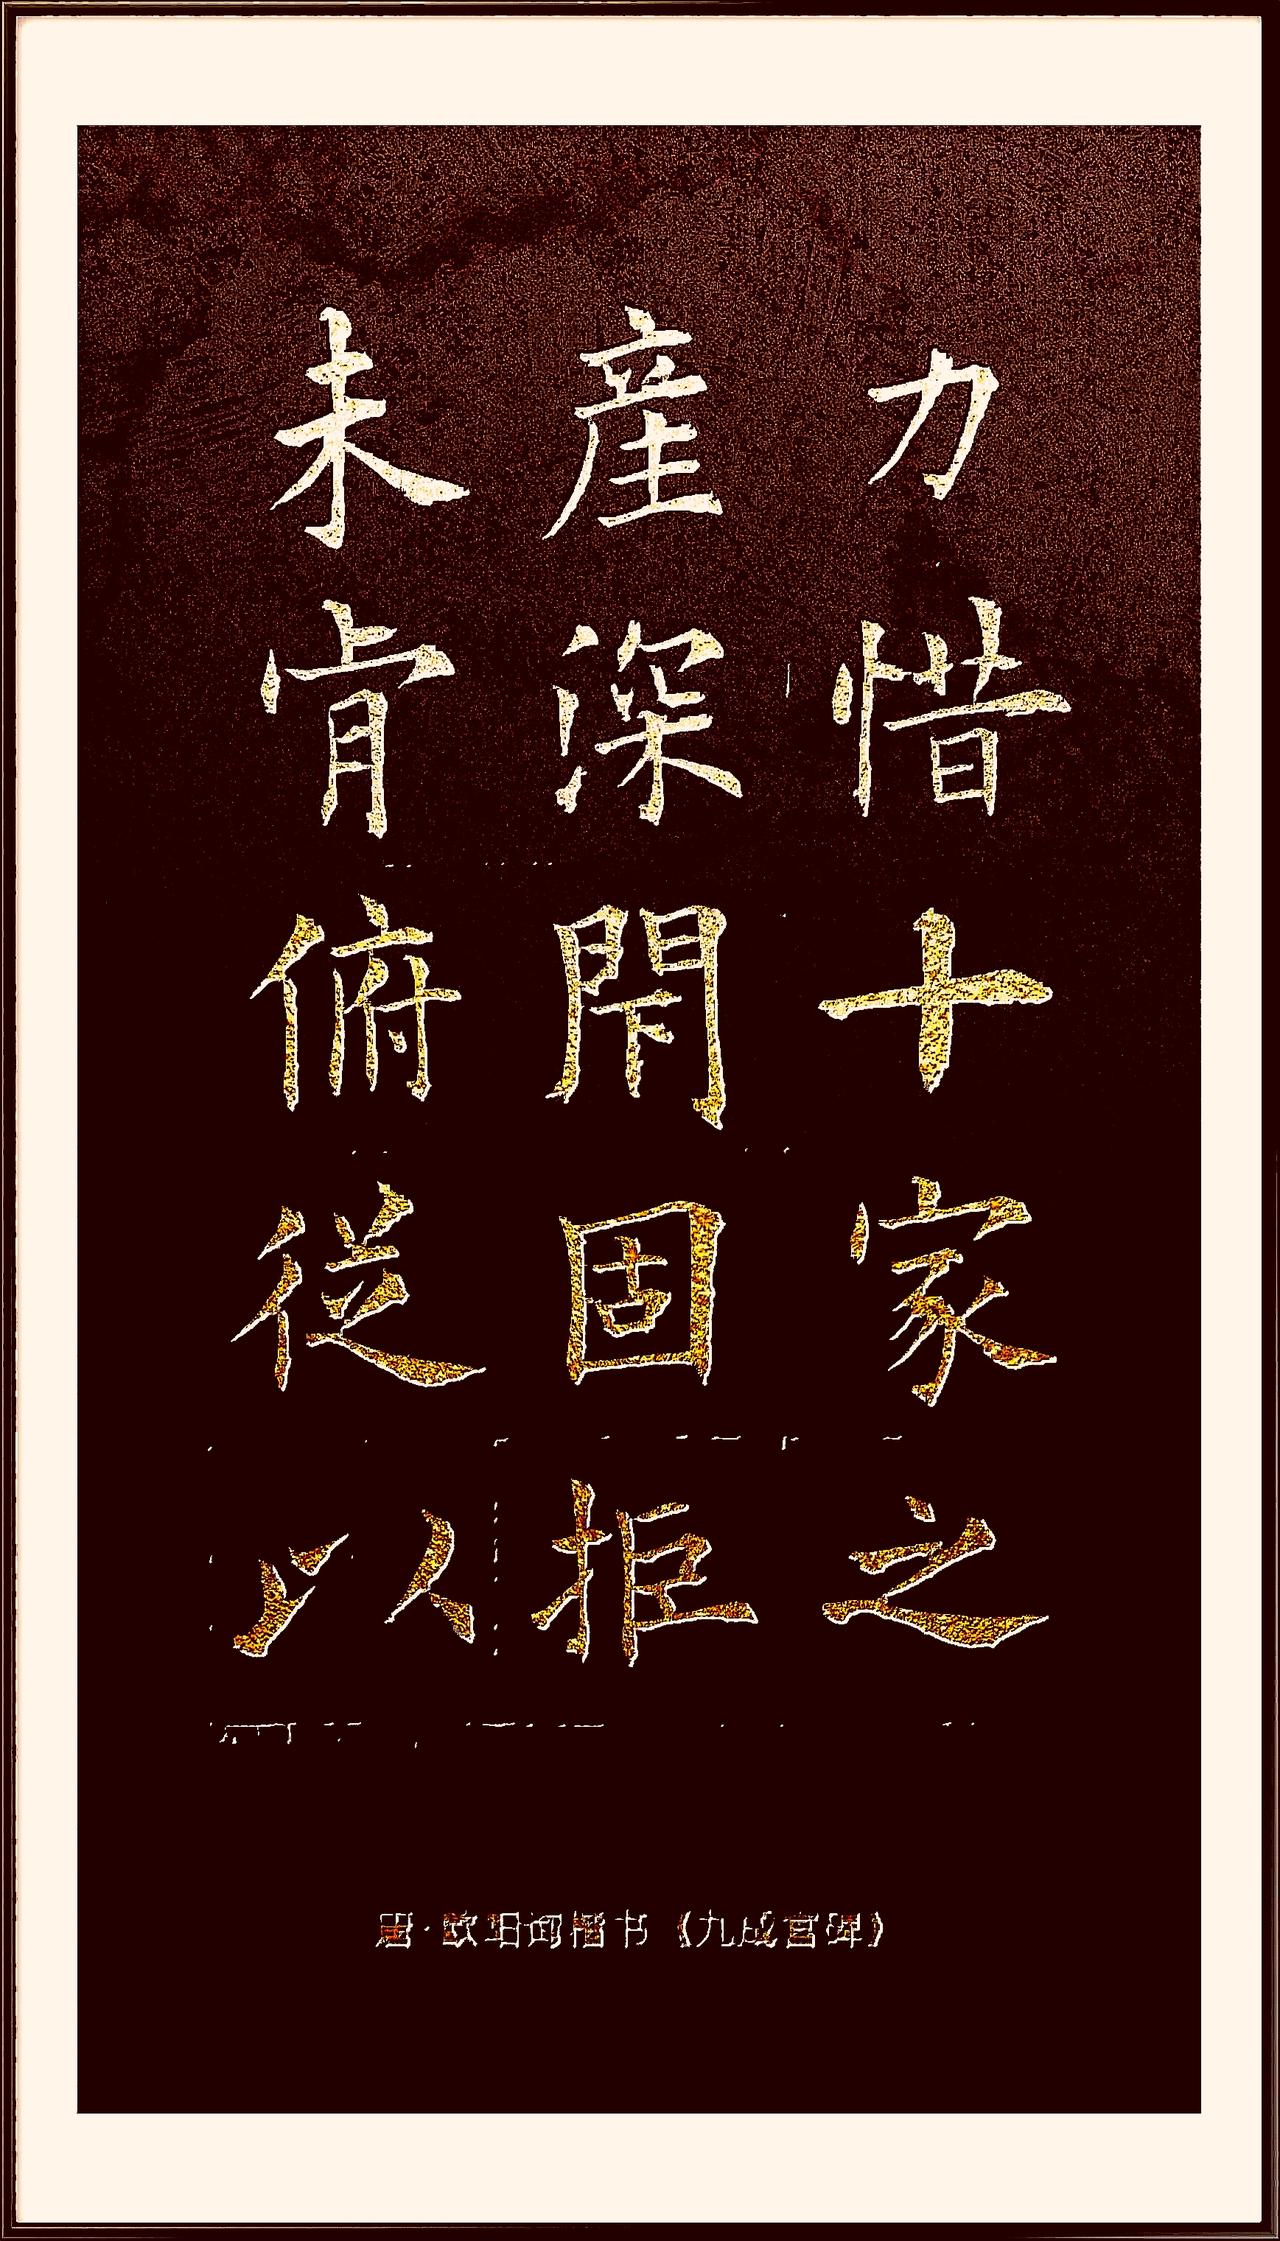 力惜十家之
産深閇固拒
未肯俯従以
唐·欧阳询楷书《九成宫碑》